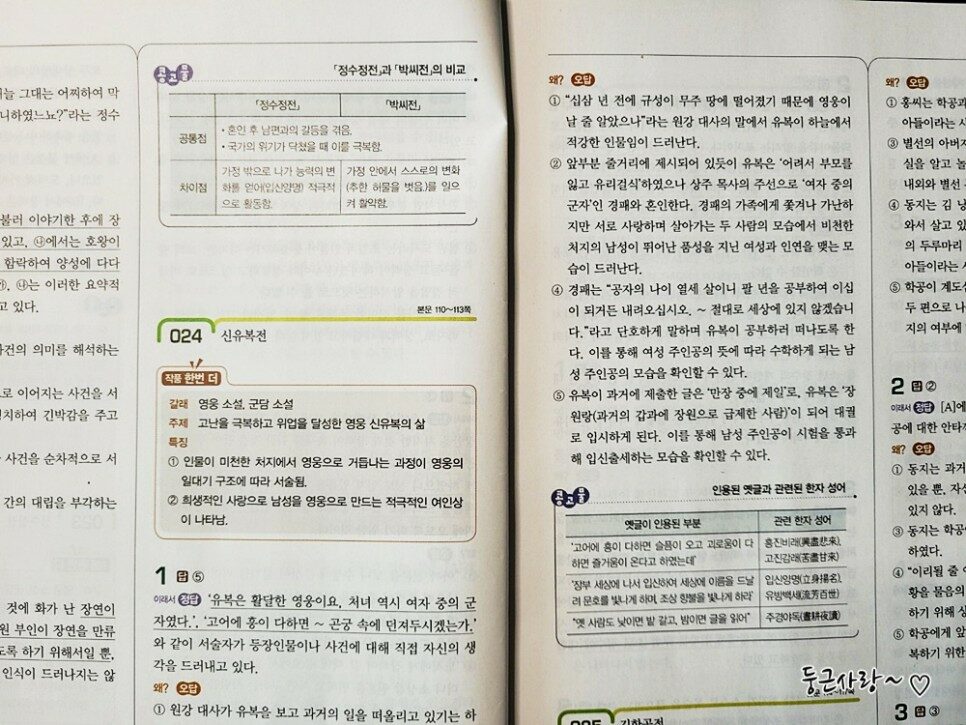 내늘 그대는 어찌하여 막
니하였느뇨?”라는 정수
불러 이야기한 후에 장
있고, ㉯에서는 호왕이
함락하여 양성에 다다
㉮. ㉯는 이러한 요약적
고 있다.
사건의 의미를 해석하는
로 이어지는 사건을 서
멸치하여 긴박감을 주고
사건을 순차적으로 서
간의 대립을 부각하는
것에 화가 난 장연이
원 부인이 장연을 만류
도록 하기 위해서일 뿐,
인식이 드러나지는 않
「정수정전」과 「박씨전」의 비교
「정수정전」 「박씨전」
공통점
• 혼인 후 남편과의 갈등을 겪음.
• 국가의 위기가 닥쳤을 때 이를 극복함.
차이점
가정 밖으로 나가 능력의 변
화를 얻어(입신양명) 적극적
으로 활동함.
가정 안에서 스스로의 변화
(추한 허물을 벗음.)를 일으
켜 활약함.
본문 110~113쪽
024 신유복전
작품 한번 더
갈래 영웅 소설, 군담 소설
주제 고난을 극복하고 위업을 달성한 영웅 신유복의 삶
특징
① 인물이 미천한 처지에서 영웅으로 거듭나는 과정이 영웅의
일대기 구조에 따라 서술됨.
② 희생적인 사랑으로 남성을 영웅으로 만드는 적극적인 여인상
이 나타남.
1 답 ⑤
이래서 정답 ‘유복은 활달한 영웅이요, 처녀 역시 여자 중의 군
자였다.’, ‘고어에 흥이 다하면 ~ 곤궁 속에 던져두시겠는가.’
와 같이 서술자가 등장인물이나 사건에 대해 직접 자신의 생
각을 드러내고 있다.
왜? 오답
① 원강 대사가 유복을 보고 과거의 일을 떠올리고 있기는 하
왜? 오답
① “십삼 년 전에 규성이 무주 땅에 떨어졌기 때문에 영웅이
날 줄 알았으나”라는 원강 대사의 말에서 유복이 하늘에서
적강한 인물임이 드러난다.
② 앞부분 줄거리에 제시되어 있듯이 유복은 ‘어려서 부모를
잃고 유리걸식’하였으나 상주 목사의 주선으로 ‘여자 중의
군자’인 경패와 혼인한다. 경패의 가족에게 쫓겨나 가난하
지만 서로 사랑하며 살아가는 두 사람의 모습에서 비천한
처지의 남성이 뛰어난 품성을 지닌 여성과 인연을 맺는 모
습이 드러난다.
④ 경패는 “공자의 나이 열세 살이니 팔 년을 공부하여 이십
이 되거든 내려오십시오. ~ 절대로 세상에 있지 않겠습니
다.”라고 단호하게 말하며 유복이 공부하러 떠나도록 한
다. 이를 통해 여성 주인공의 뜻에 따라 수학하게 되는 남
성 주인공의 모습을 확인할 수 있다.
⑤ 유복이 과거에 제출한 글은 ‘만장 중에 제일’로, 유복은 ‘장
원랑(과거의 갑과에 장원으로 급제한 사람)’이 되어 대궐
로 입시하게 된다. 이를 통해 남성 주인공이 시험을 통과
해 입신출세하는 모습을 확인할 수 있다.
인용된 옛글과 관련된 한자 성어
옛글이 인용된 부분 관련 한자 성어
‘고어에 흥이 다하면 슬픔이 오고 괴로움이 다
하면 즐거움이 온다고 하였는데’
흥진비래(興盡悲來),
고진감래(苦盡甘來)
‘장부 세상에 나서 입신하여 세상에 이름을 드날
려 문호를 빛나게 하며, 조상 향불을 빛나게 하라’
입신양명(立身揚名),
유방백세(流芳百世)
“옛 사람도 낮이면 밭 갈고, 밤이면 글을 읽어” 주경야독(晝耕夜讀)
왜? 오답
① 홍씨는 학공과
아들이라는 사
③ 별선의 아버지
실을 알고 놀
내외와 별선
④ 동지는 김 낭
와서 살고 있
의 두루마리
아들이라는 사
⑤ 학공이 계도섬
두 편으로 나
지의 여부에
2 답 ②
이래서 정답 [A]에
공에 대한 안타까
왜? 오답
① 동지는 과거
있을 뿐, 자신
있지 않다.
③ 동지는 학공
하였다.
④ “이리될 줄
황을 물음의
하기 위해 상
⑤ 학공에게 앞
복하기 위한
3 답 ③
025 김학공전
둥근사랑~ ♡